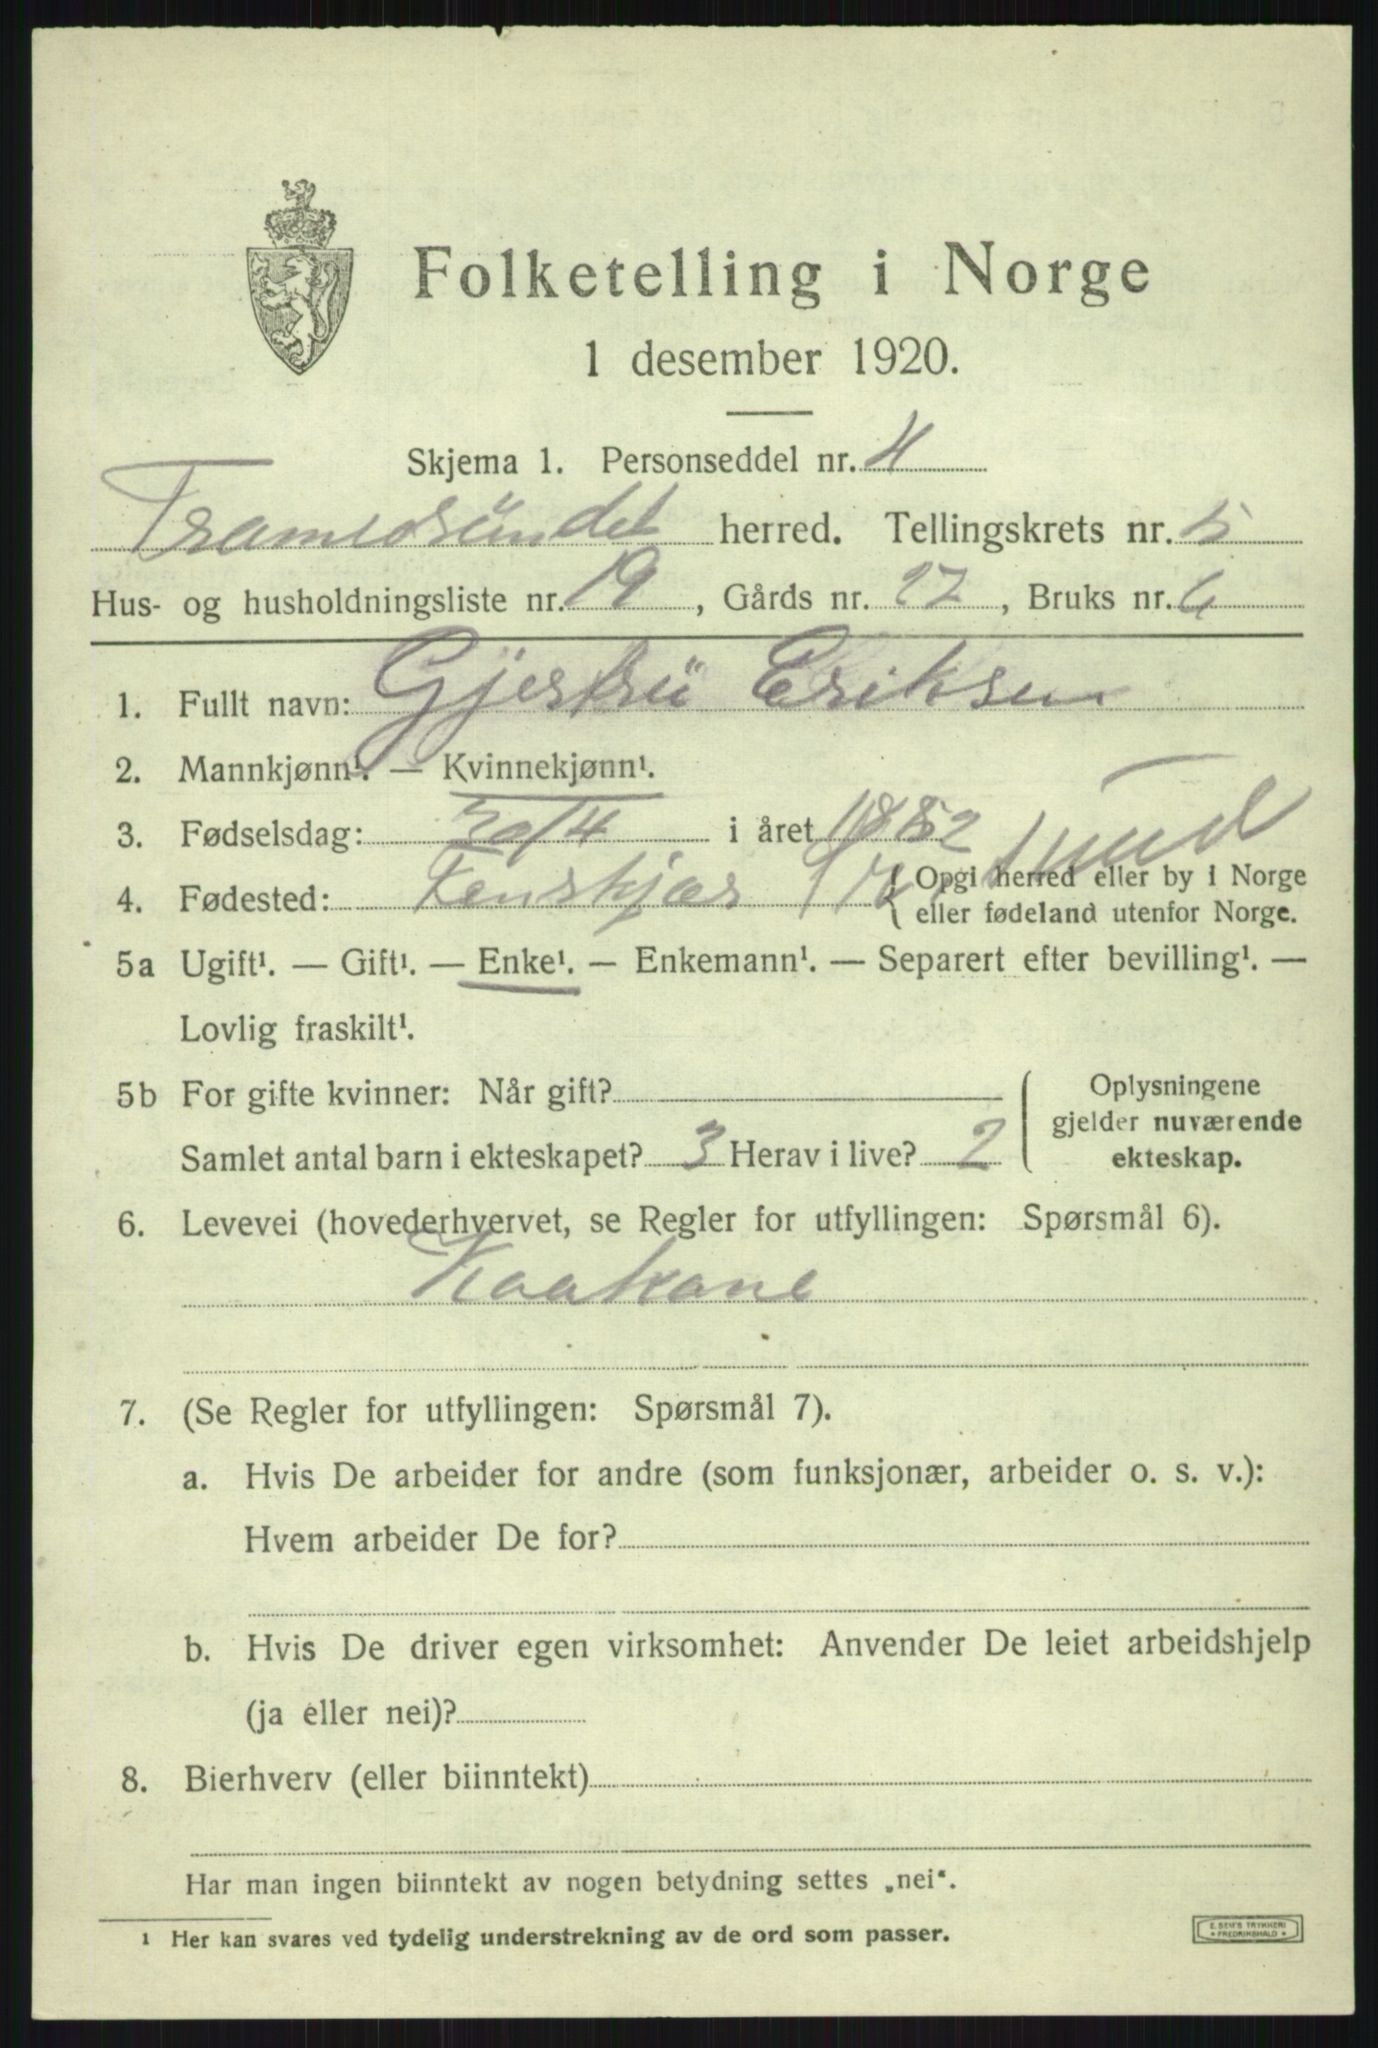 Folketelling i Norge
1 desember 1920.
Skjema 1. Personseddel nr. 4
Tromsøsundet herred. Tellingskrets nr. 5
Hus- og husholdningsliste nr. 19, Gårds nr. 22, Bruks nr. 6
1. Fullt navn: Gjertrü Eriksen
2. Mannkjønn¹. — Kvinnekjønn¹.
3. Fødselsdag: 30/4 i året 1852
4. Fødested: sund { Opgi herred eller by i Norge
eller fødeland utenfor Norge.
5a Ugift¹. — Gift¹. — Enke¹. — Enkemann¹. — Separert efter bevilling¹. —
Lovlig fraskilt¹.
5b For gifte kvinner: Når gift?
Samlet antal barn i ekteskapet? 3 Herav i live? 2
Oplysningene
gjelder nuværende
ekteskap.
6. Levevei (hovederhvervet, se Regler for utfyllingen: Spørsmål 6).
Kaakone
7. (Se Regler for utfyllingen: Spørsmål 7).
a. Hvis De arbeider for andre (som funksjonær, arbeider o. s. v.):
Hvem arbeider De for?
b. Hvis De driver egen virksomhet: Anvender De leiet arbeidshjelp
(ja eller nei)?
8. Bierhverv (eller biinntekt)
Har man ingen biinntekt av nogen betydning settes „nei“.
¹ Her kan svares ved tydelig understrekning av de ord som passer.
E. SEM'S TRYKKERI
FREDRIKSHALD